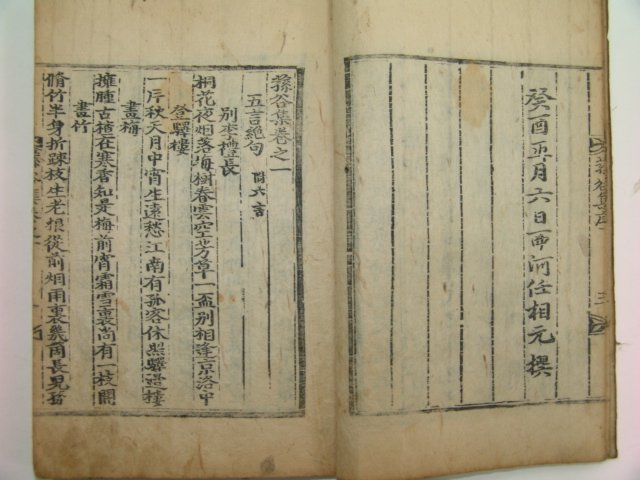 癸酉正月六日西河任相元撰
蓀谷集序
三
蓀谷集卷之一
五言絶句 附六言
別李禮長
桐花夜烟落海樹春雲空芳草一盃別相逢京洛中
登驛樓
一片秋天月中宵生遠愁江南有孤客休照驛邊樓
畫梅
擁腫古槎在寒香知是梅前宵霜雪裏尚有一枝開
畫竹
脩竹半身折疎枝生老根從前烟雨裏幾